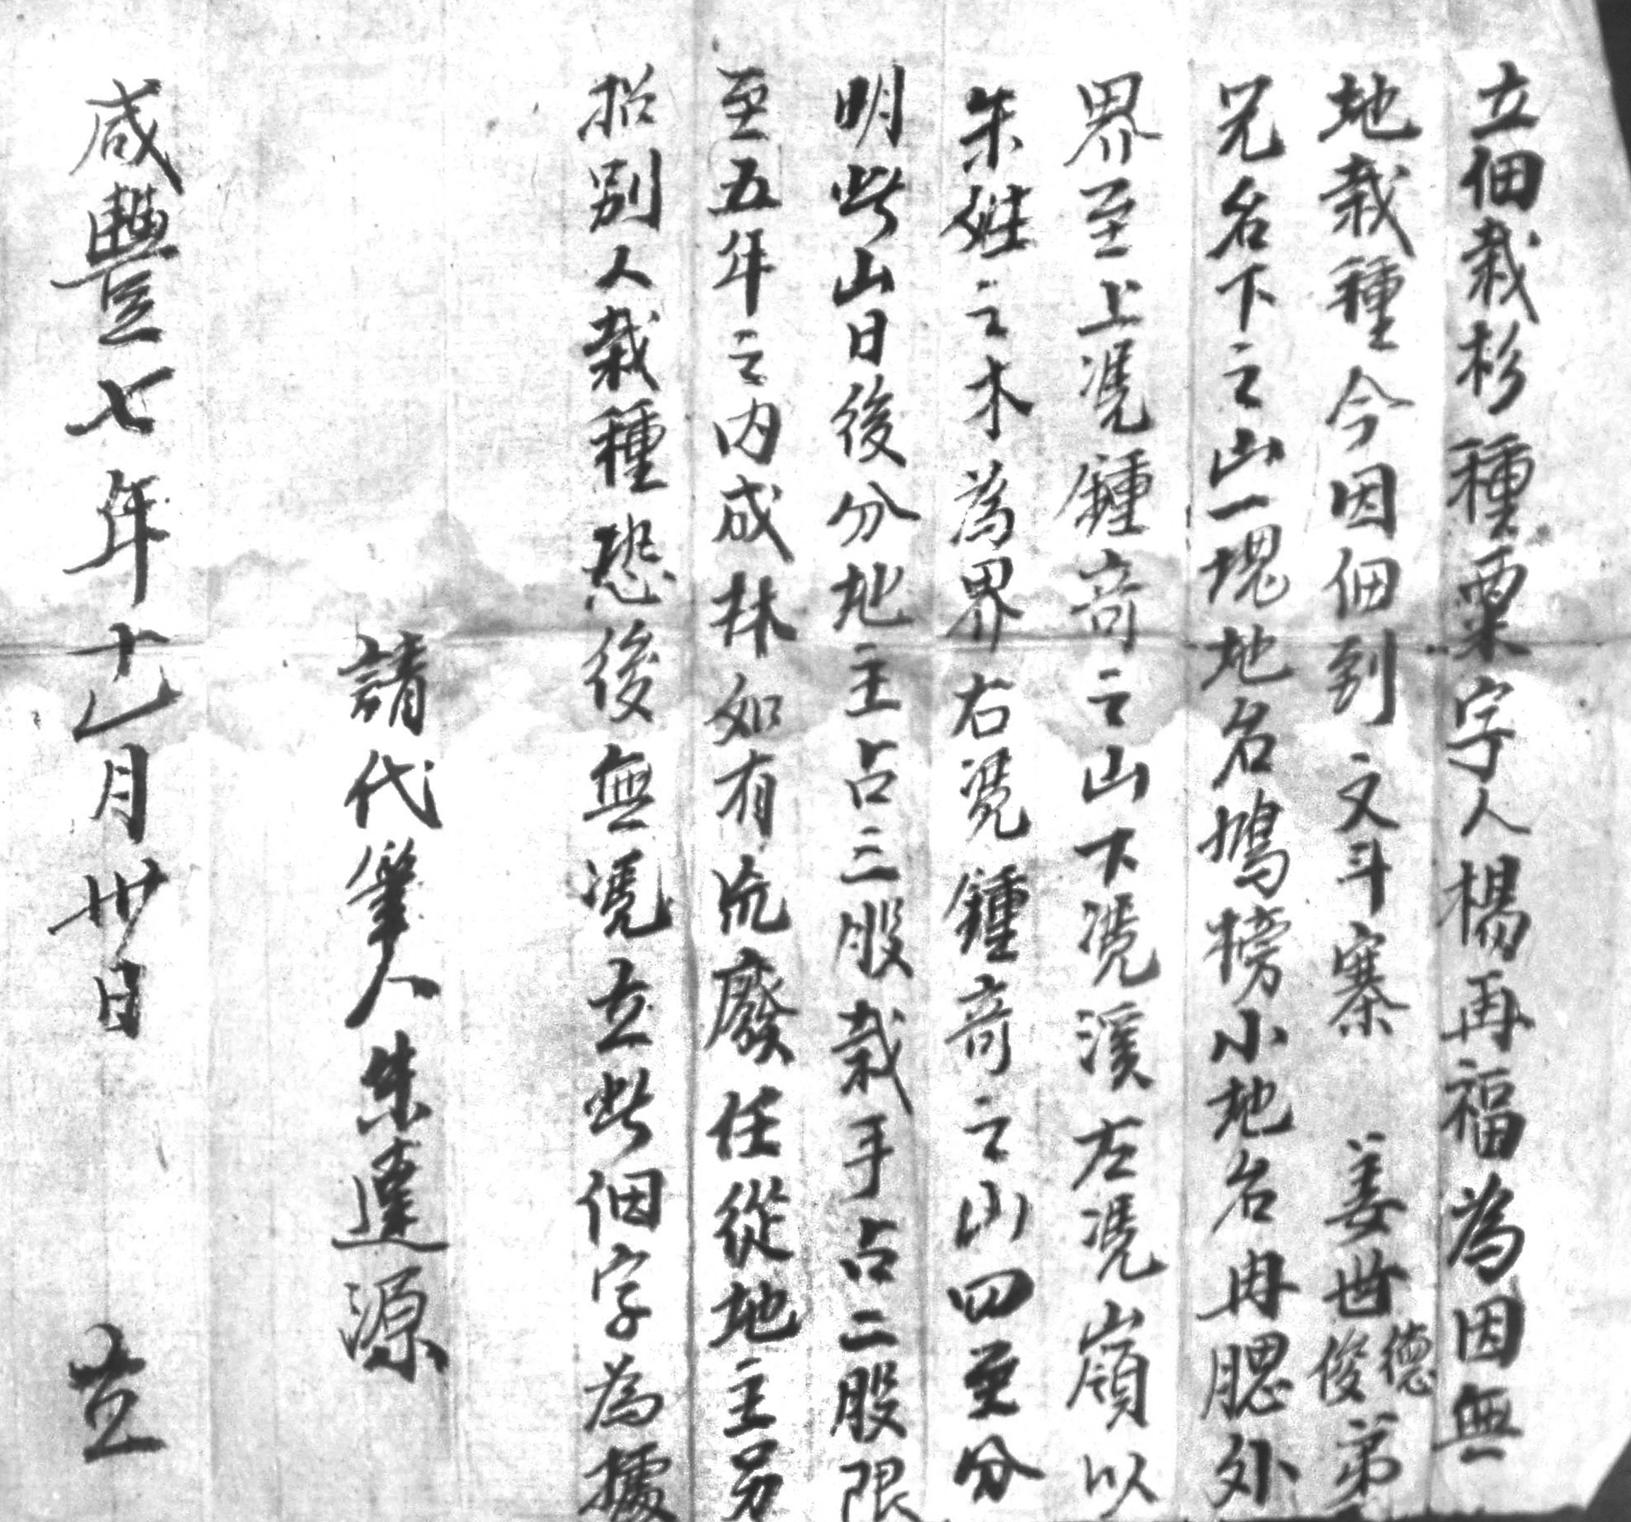 立佃栽杉種粟字人楊再福為因無
地栽種今因佃到文斗寨 姜世德俊弟
兄名下之山一塊地名鳩榜小地名冉腮外
界至上凴鍾奇之山下凴溪左凴嶺以
朱姓之木為界右凴鍾奇之山四至分
明此山日後分地主占三股栽手占二股限
至五年之內成林如有荒廢任從地主另
招別人栽種恐後無凴立此佃字為據
請代筆人朱達源
咸豐七年十一月卅日 立